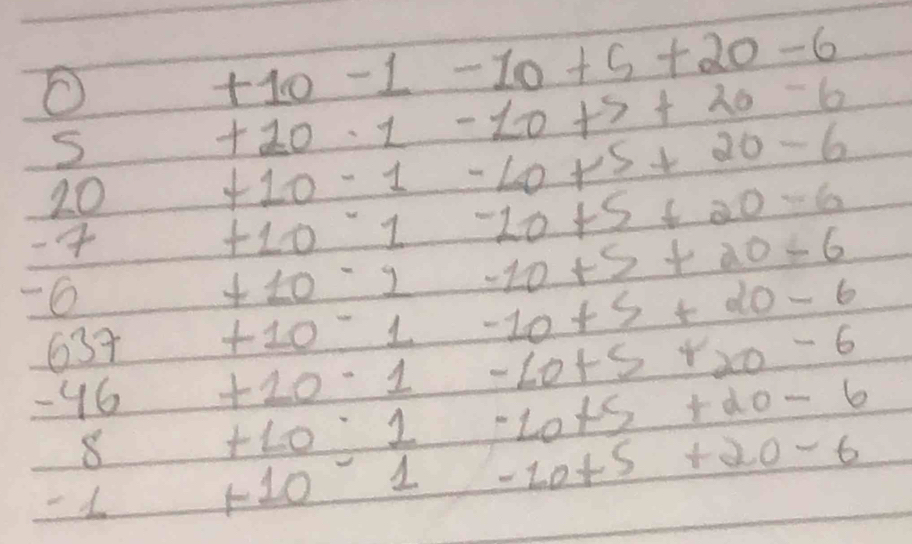 0 +10 -1 -10 +5 +20 -6
5 +10 -1 -10 +5 + 20 -6
20 +10 - 1 -10 +5 + 20 -6
-7 +10 - 1 -10 +5 + 20 -6
-6 +10 - 1 -10 +5 + 20 -6
637 +10 - 1 -10 +5 + 20 - 6
-46 +10 - 1 -10+5 +20 - 6
8 +10 - 1 -10+5 +20 - 6
-1 +10 - 1 -10+5 +20 - 6